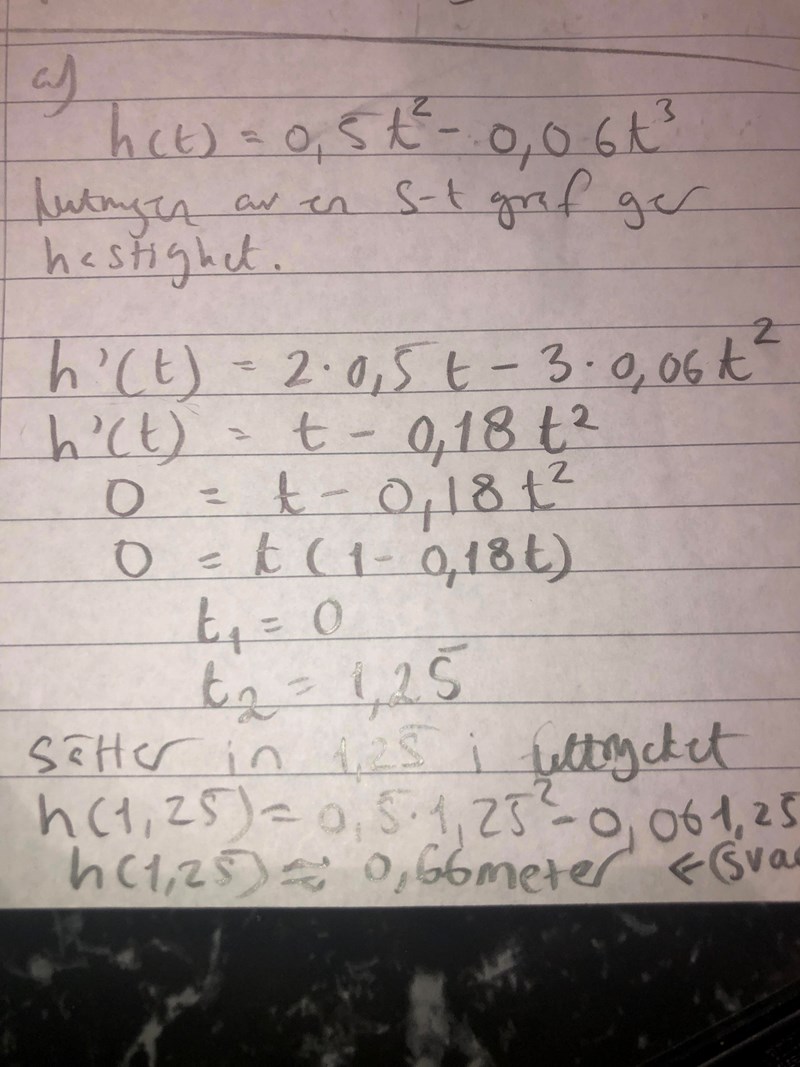 a)
h(t) = 0,5t² - 0,06t³
av en s-t graf ger
hastighet.
h'(t) = 2·0,5t - 3·0,06t²
h'(t) = t - 0,18t²
0 = t - 0,18t²
0 = t(1-0,18t)
t₁ = 0
t₂ = 1,25
Sätter in 1,25 i uttrycket
h(1,25) = 0,5·1,25² - 0,061,25
h(1,25) ≈ 0,66meter ←(Sva